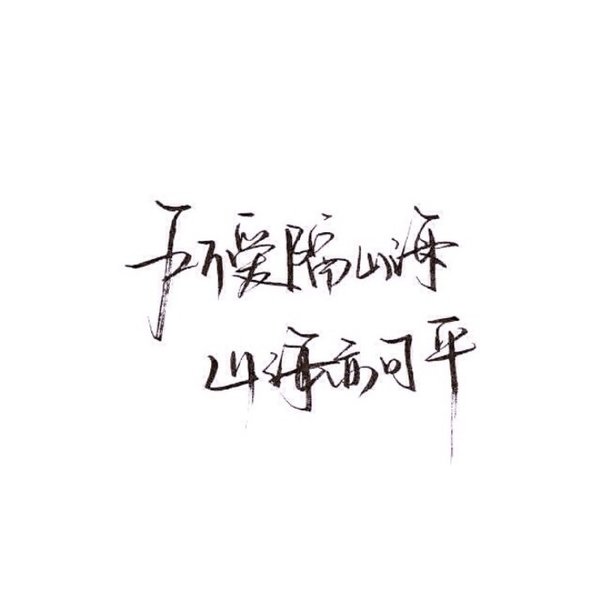 所爱隔山海
山海亦可平